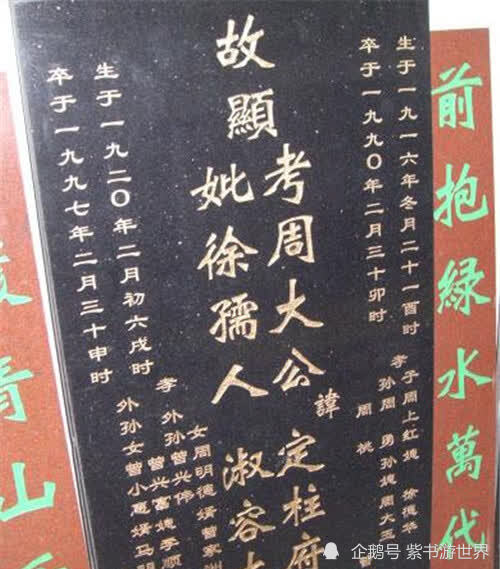 前抱綠水萬代
生于一九一六年冬月二十一酉时
卒于一九九〇年二月三十卯时
孝子周上红媳徐德华
孙周勇孙媳周大玉
周桃
故顯
考周大公諱定柱府
妣徐孺人淑容
女周明德婿曾家
孝外孙曾兴伟
曾兴富媳李顺
外孙女曾小恵婿马
生于一九二〇年二月初六戌时
卒于一九九七年二月三十申时
青山
企鹅号 紫书游世界